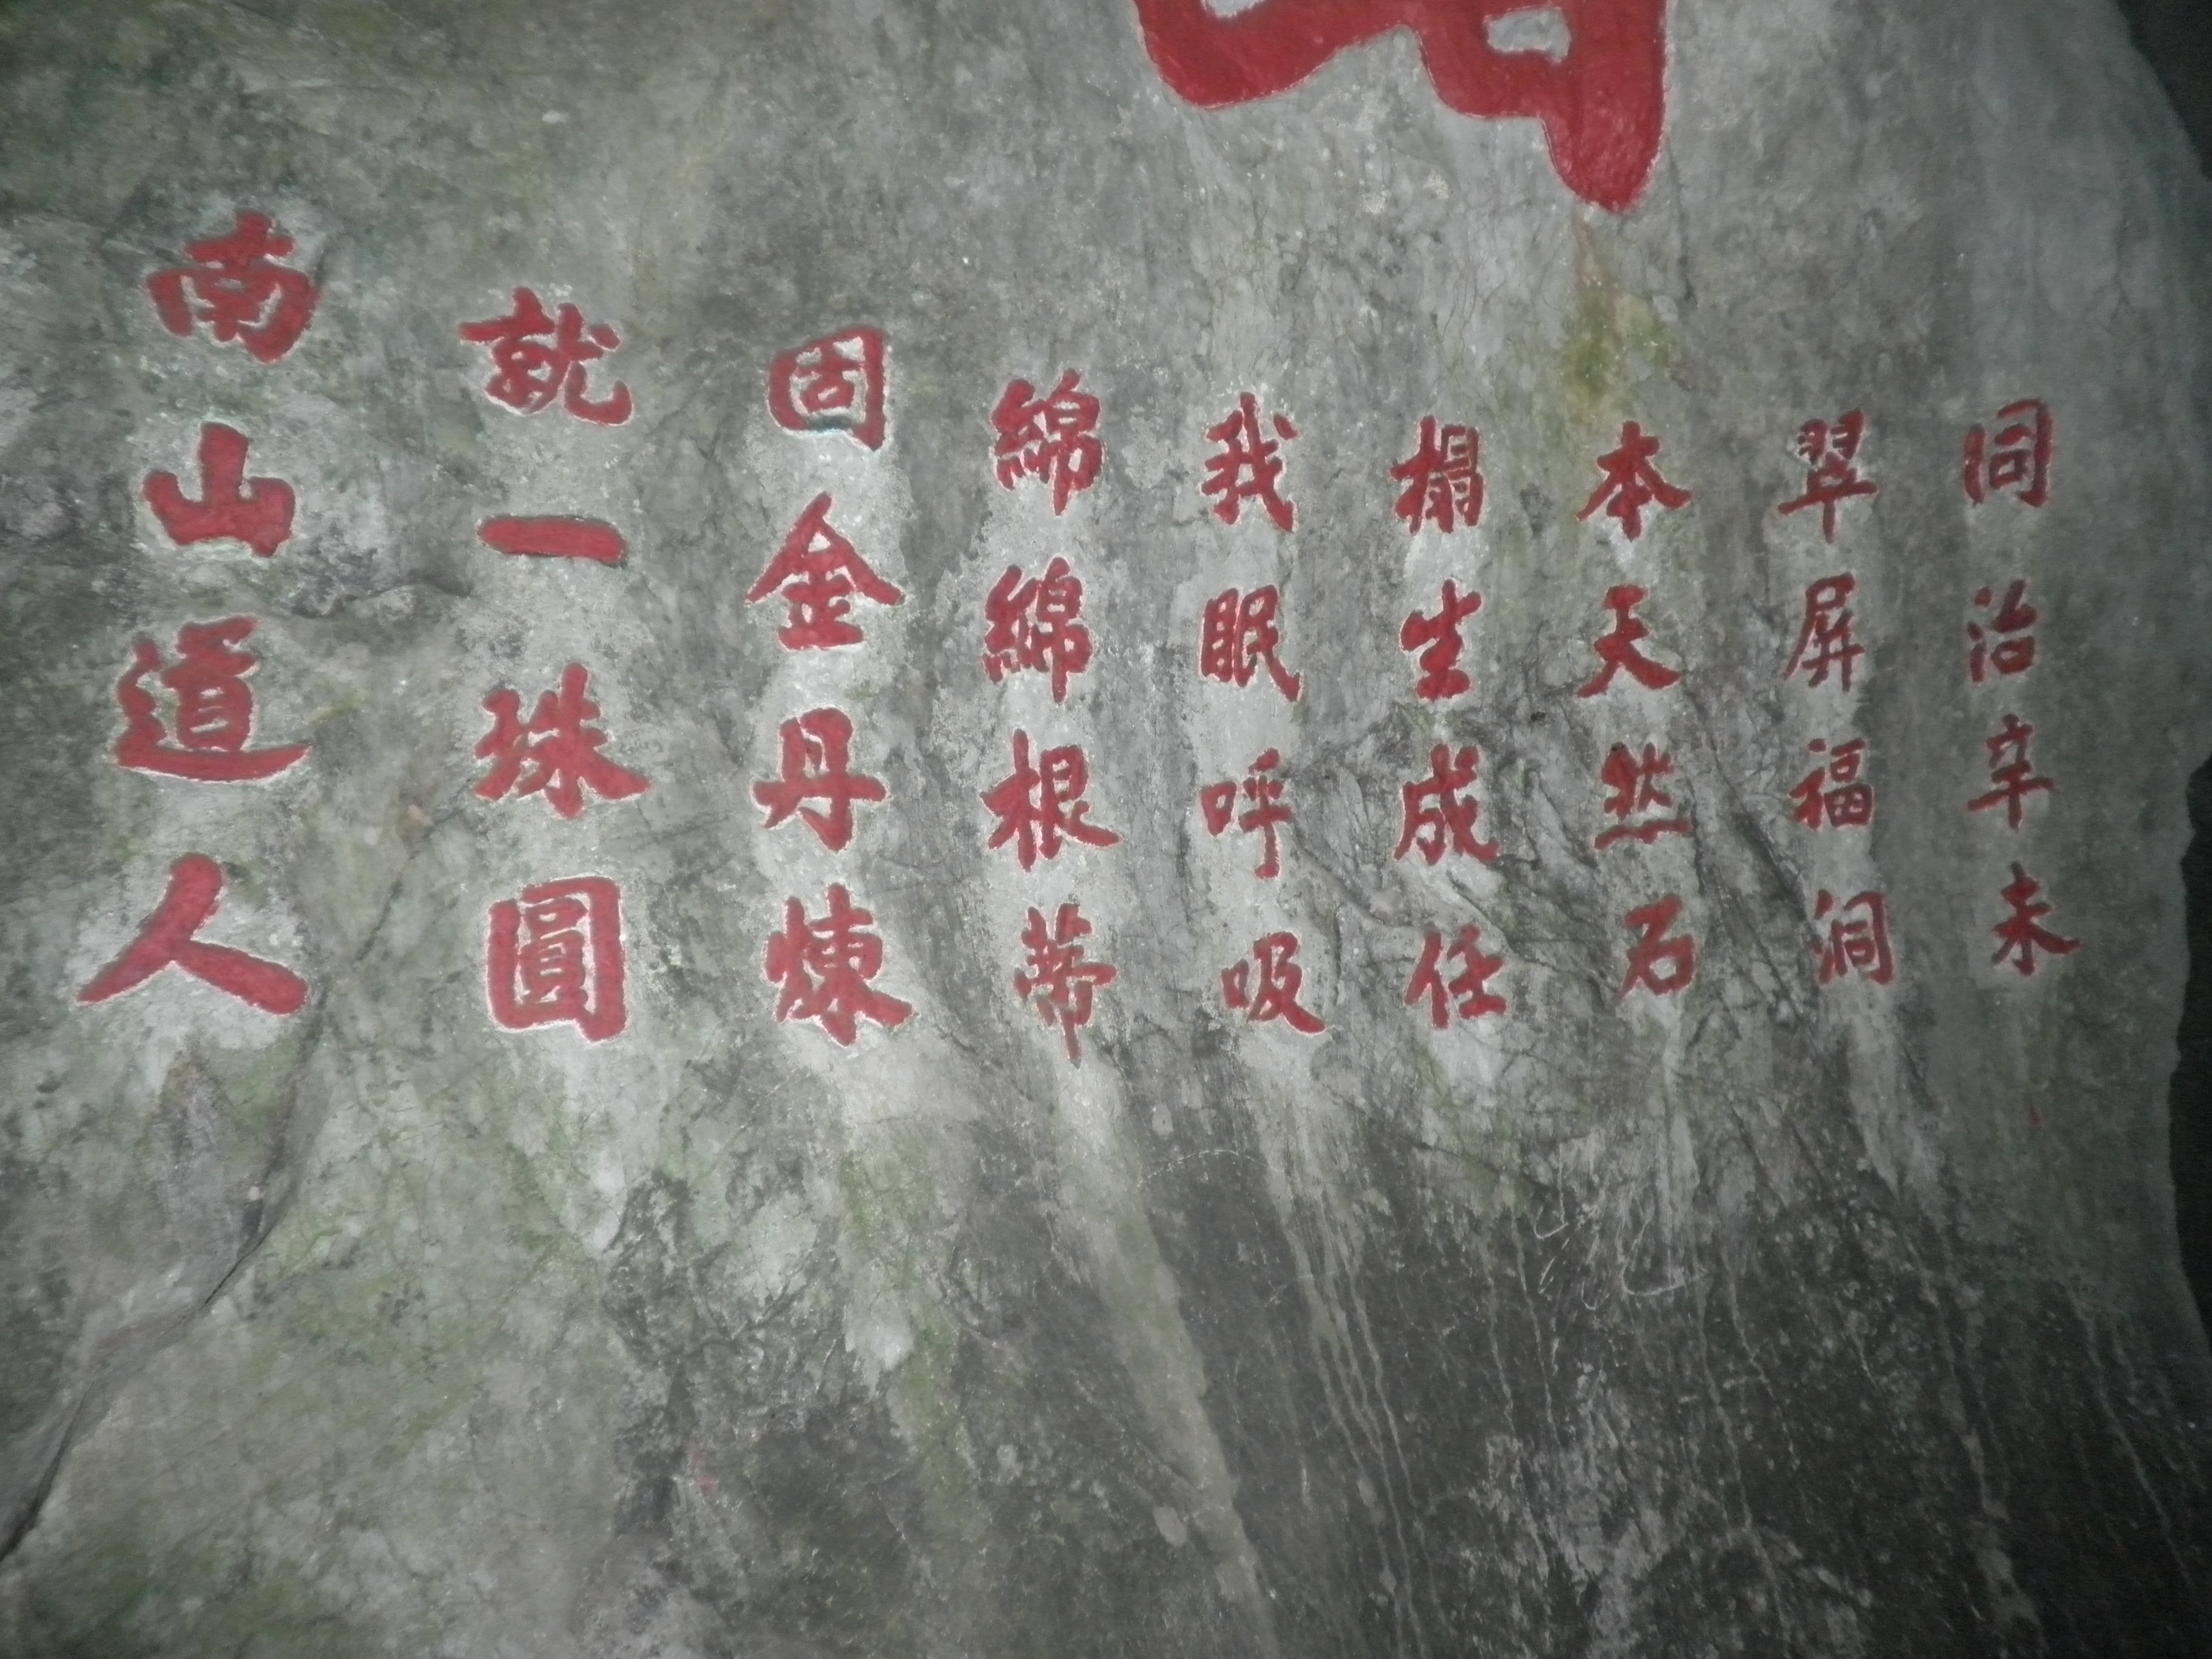 同治辛未
翠屏福洞
本天然石
榻生成任
我眠呼吸
綿綿根蒂
固金丹煉
就一珠圓
南山道人